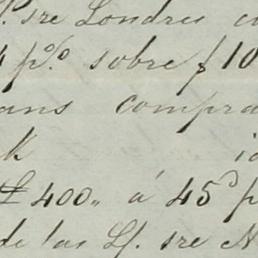 sre Londres
4 p%. sobre £ 10
ans compra
k
£ 400,, á 45ᵈ p
de las Lf. sre N